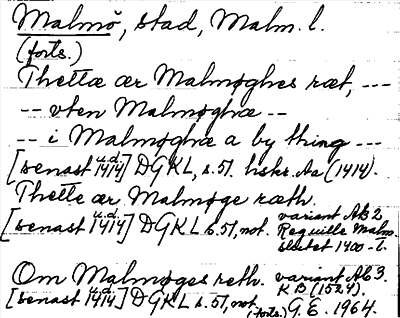 Malmö, stad, Malm. l.
(forts.)
Thettæ ær Malmøghes ræt, ---
-- vten Malmøghæ --
-- i Malmøghæ a by thing ---
[senast u.d. 1414] DGKL, s. 51. hskr. Aa (1414).
Thette ær Malmøge ræth.
[senast u.d. 1414] DGKL s. 51, not. variant AB 2, Requille Malm. slutet 1400-t.
Om Malmøges reth. variant AB 3. KB (1524).
[senast u.d. 1414] DGKL s. 51, not. (forts.) G.E. 1964.